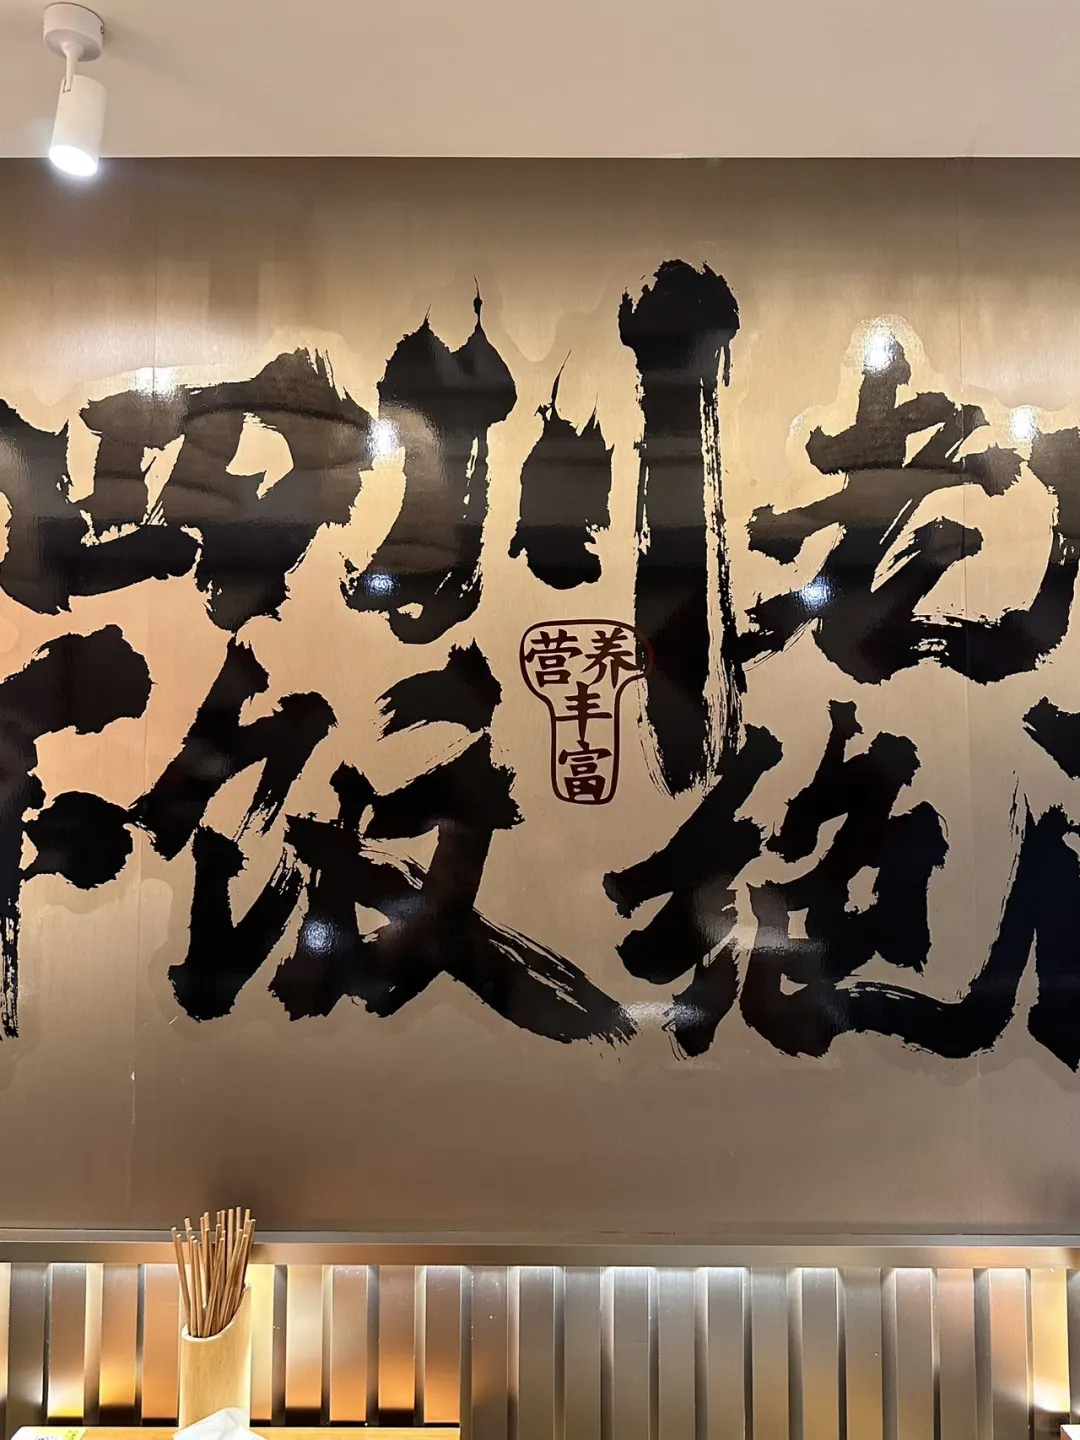 四川老
下饭绝
营养
丰
富